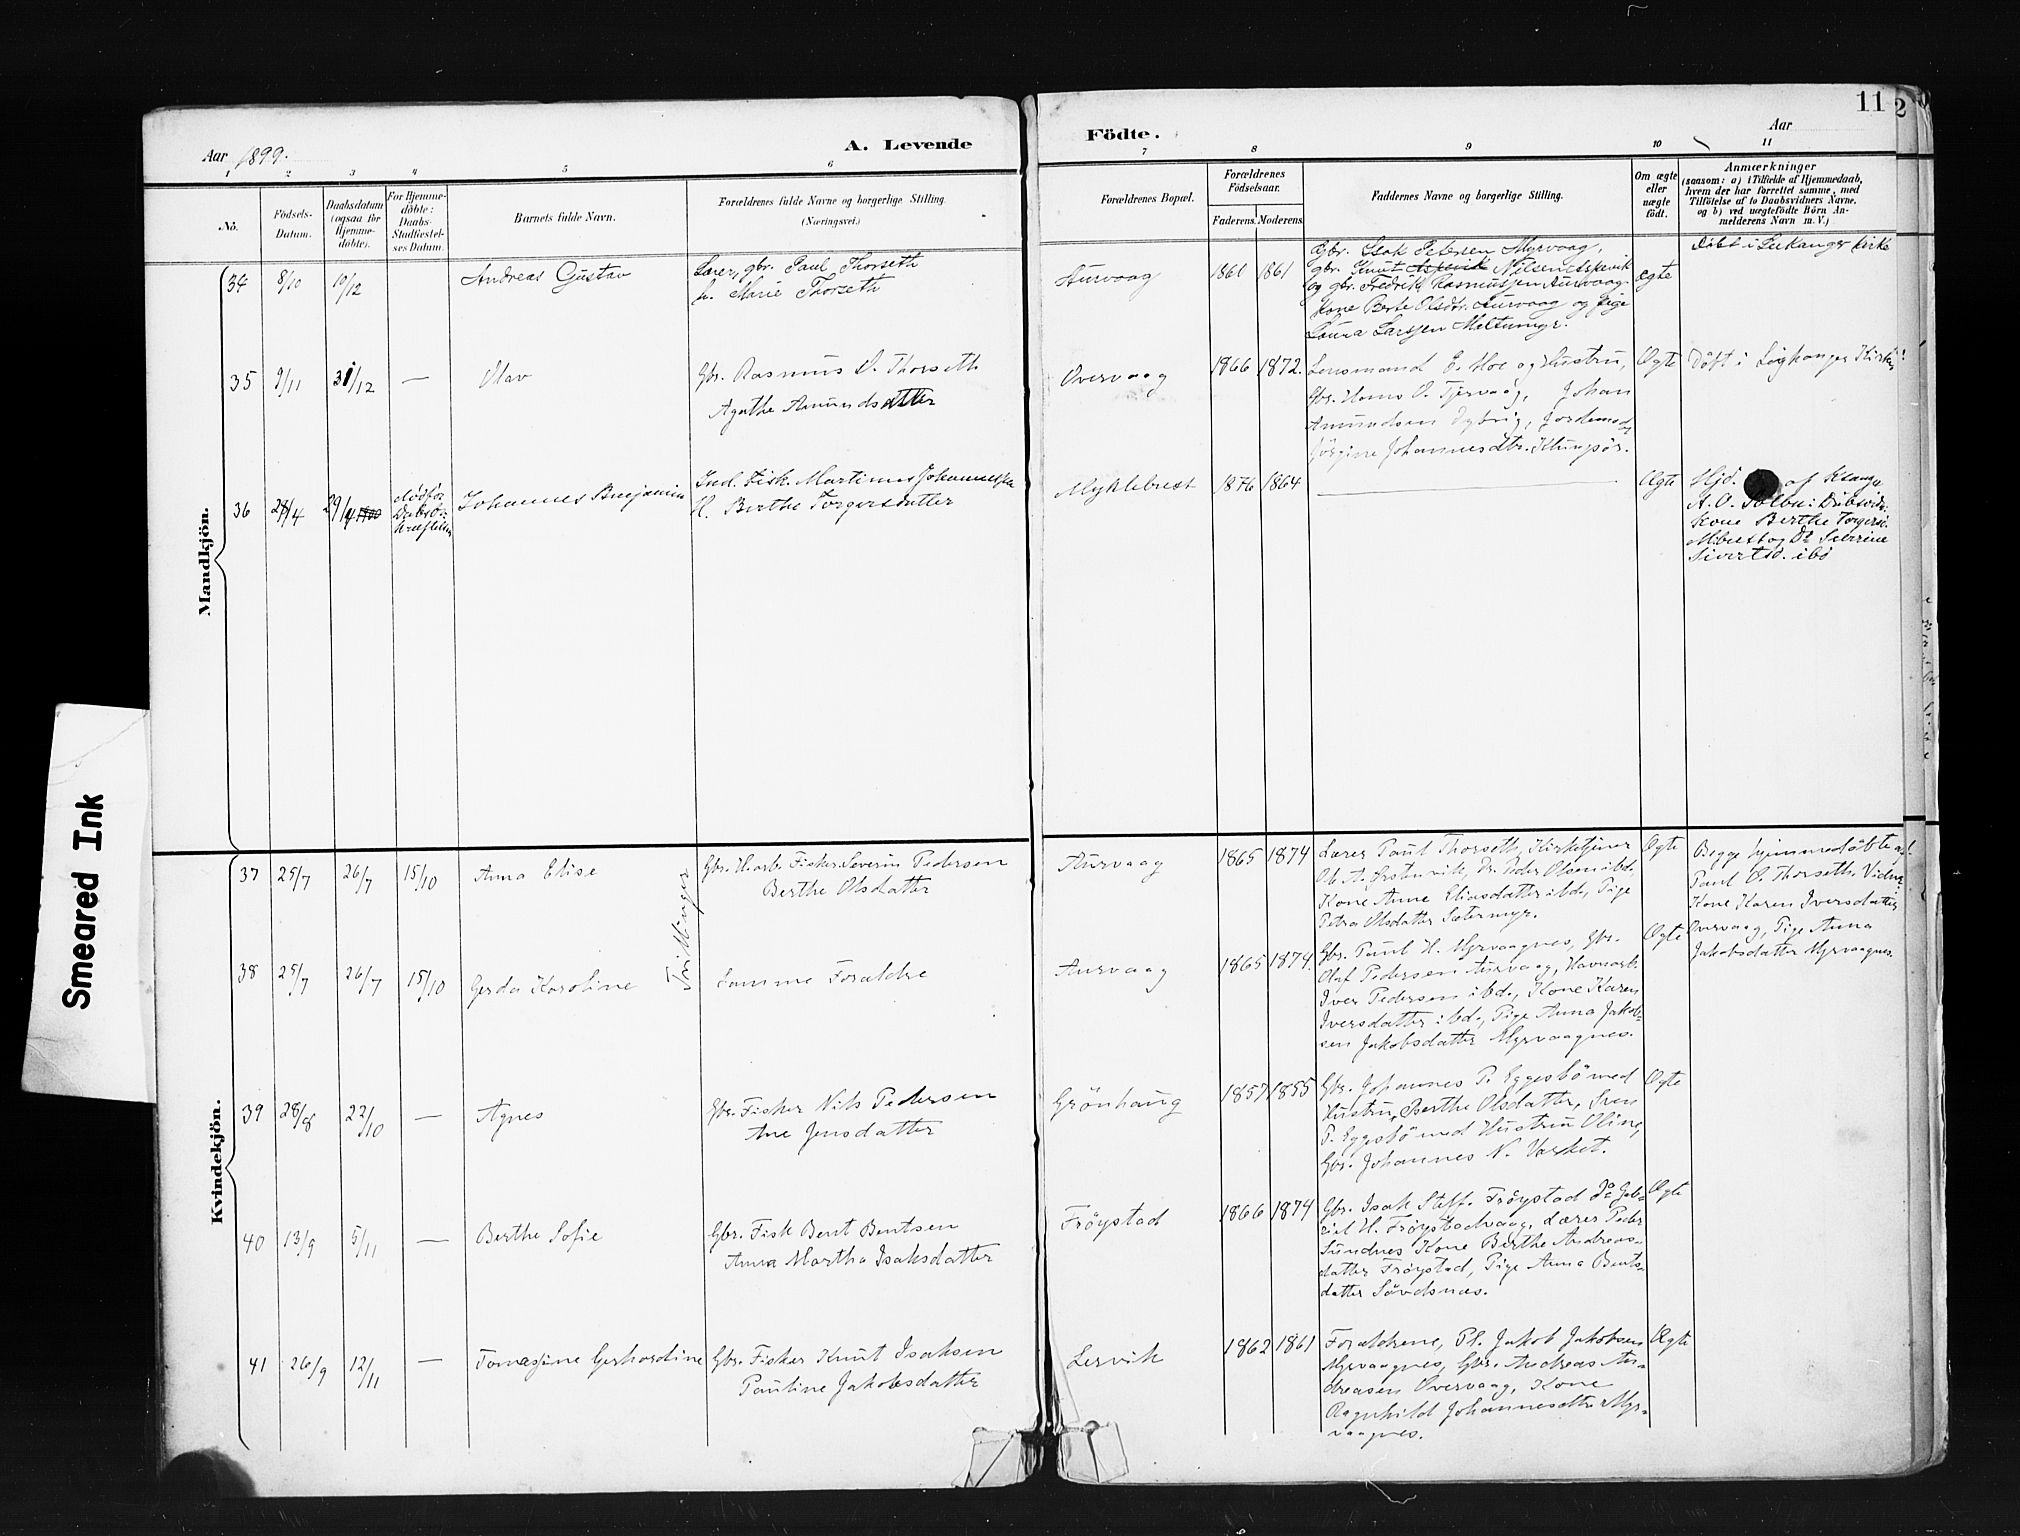 Smeared Ink
Aar 1899.
A. Levende
Födte.
Aar
11
2
1 2 3 4 5 6 7 8 9 10 11
No.
Födsels-
Datum.
Daabsdatum
(ogsaa for
Hjemme-
döbte).
For Hjemme-
döbte:
Daabs-
Stadfæstel-
ses Datum.
Barnets fulde Navn.
Forældrenes fulde Navne og borgerlige Stilling.
(Næringsvei.)
Forældrenes Bopæl.
Forældrenes
Födselsaar.
Faderens. Moderens.
Faddernes Navne og borgerlige Stilling.
Om ægte
eller
uægte
födt.
Anmærkninger
(saasom: a) i Tilfælde af Hjemmedaab,
hvem der har forrettet samme, med
Tilföielse af to Daabsvidners Navne,
og b) ved uægtefödte Börn An-
melderens Navn m. V.)
Mandkjön.
34 8/10 10/12 Andreas Gustav
Lærer, gbr. Paul Thorseth
h. Marie Thorseth
Aurvaag 1861 1861
Gbr. Isak Petersen Myrvaag,
gbr. Knut Aspevik Nilsen Aspevik
og gbr. Fredrik Rasmussen Aurvaag.
Kone Berte Olsdtr. Aurvaag og pige
Laura Larssen Meltumyr.
ægte
Döbt i Leikanger kirke
35 9/11 31/12 — Olav
Gbr. Rasmus O. Thorseth
Agathe Amundsdatter
Overvaag 1866 1872.
Lensmand E. Moe og Hustru,
Gbr. Hans O. Tjervaag, Johan
Amundsen Dybvig, Jordemoder
Jörgine Johannesdtr. Klungsör.
Ægte
Döbt i Leighanger Kirke
36 29/4
Johannes Benjamin
Ind. Fisk. Martinus Johannessen
H. Berthe Torgersdatter
Myklebust 1876 1864 —
Ægte
Hjd. af Ksanger
A. O. Dåbsvidn:
Kone Berthe Torgersd.
Mbust og Do Sebrine
Sivertsd. ibd
Kvindekjön.
37 25/7 26/7 15/10 Anna Elise
Tvillinger
Gbr. Havarb. Fisker Severin Pedersen
Berthe Olsdatter
Aurvaag 1865 1874
Lærer Paul Thorseth, Kirketjener
O. A. Ørstenvik, Dr. Peder Olsen ibd.,
Kone Anne Eliasdatter ibd., Pige
Petra Olsdatter Sætermyr.
Ægte
Begge hjemmedöbte af
Paul O. Thorseth. Vidner:
Kone Karen Iversdatter
Overvaag, Pige Anna
Jakobsdatter Myrvaagnes.
38 25/7 26/7 15/10 Gerda Karoline
Samme Forældre
Aurvaag 1865 1874.
Gbr. Paul H. Myrvaagnes, Gbr.
Olaf Pedersen Aurvaag, Havnearb.
Iver Pedersen ibd., Kone Karen
Iversdatter ibd., Pige Anna Jakob-
sen Jakobsdatter Myrvaagnes.
Ægte
39 28/8 22/10 — Agnes
Gbr. Fisker Nils Pedersen
Ane Jensdatter
Grönhaug 1857 1855
Gbr. Johannes P. Eggesbö med
Hustru Berthe Olsdatter, Iver
P. Eggesbö med Hustru Oline,
Gbr. Johannes N. Vasket.
Ægte
40 13/9 5/11 — Berthe Sofie
Gbr. Fisk Bent Bentsen
Anna Martha Isaksdatter
Fröystad 1866 1874
Gbr. Isak Steff. Fröystad Do Gab-
riel H. Fröystadvaag, Lærer Peder
Sundnes Kone Berthe Andreas-
datter Fröystad, Pige Anna Bents-
datter Sövdsnæs.
Ægte
41 26/9 12/11 — Tomasjine Gerhardine
Gbr. Fisker Knut Isaksen
Pauline Jakobsdatter
Lervik 1862 1861
Forældrene, Pl. Jakob Jakobsen
Myrvaagnes, Gbr. Andreas An-
dreasen Overvaag, Kone
Ragnhild Johannesdtr Myr-
vaagnes.
Ægte